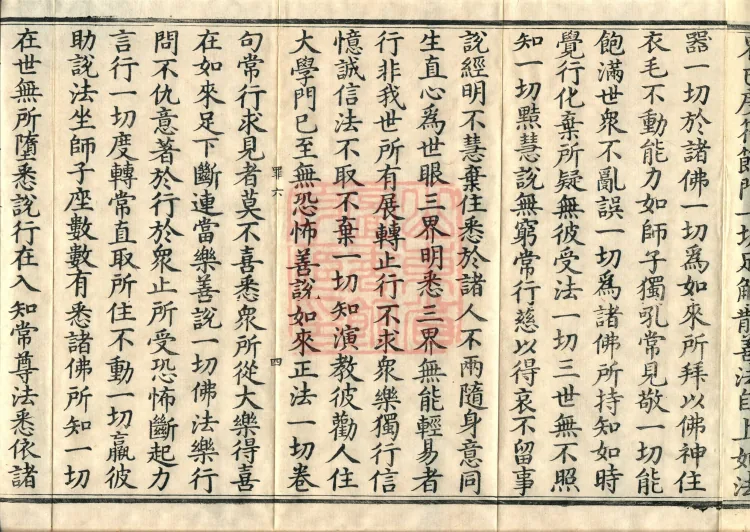 器一切於諸佛一切為如來所拜以佛神住
衣毛不動能力如師子獨吼常見敬一切能
飽滿世衆不亂誤一切為諸佛所持知如時
覺行化棄所疑無彼受法一切三世無不照
知一切黠慧說無窮常行慈以得哀不留事
說經明不慧棄住悉於諸人不兩隨身意同
生直心為世眼三界明悉三界無能輕易者
行非我世所有展轉止行不求衆樂獨行信
憶誠信法不取不棄一切知演教彼勸人住
大學門已至無恐怖善說如來正法一切卷
罪六
四
句常行求見者莫不喜悉衆所從大樂得喜
在如來足下斷連當樂善說一切佛法樂行
問不仇意著於行於衆止所受恐怖斷起力
言行一切度轉常直取所住不動一切羸彼
助說法坐師子座數數有悉諸佛所知一切
在世無所墮悉說行在入知常尊法悉依諸